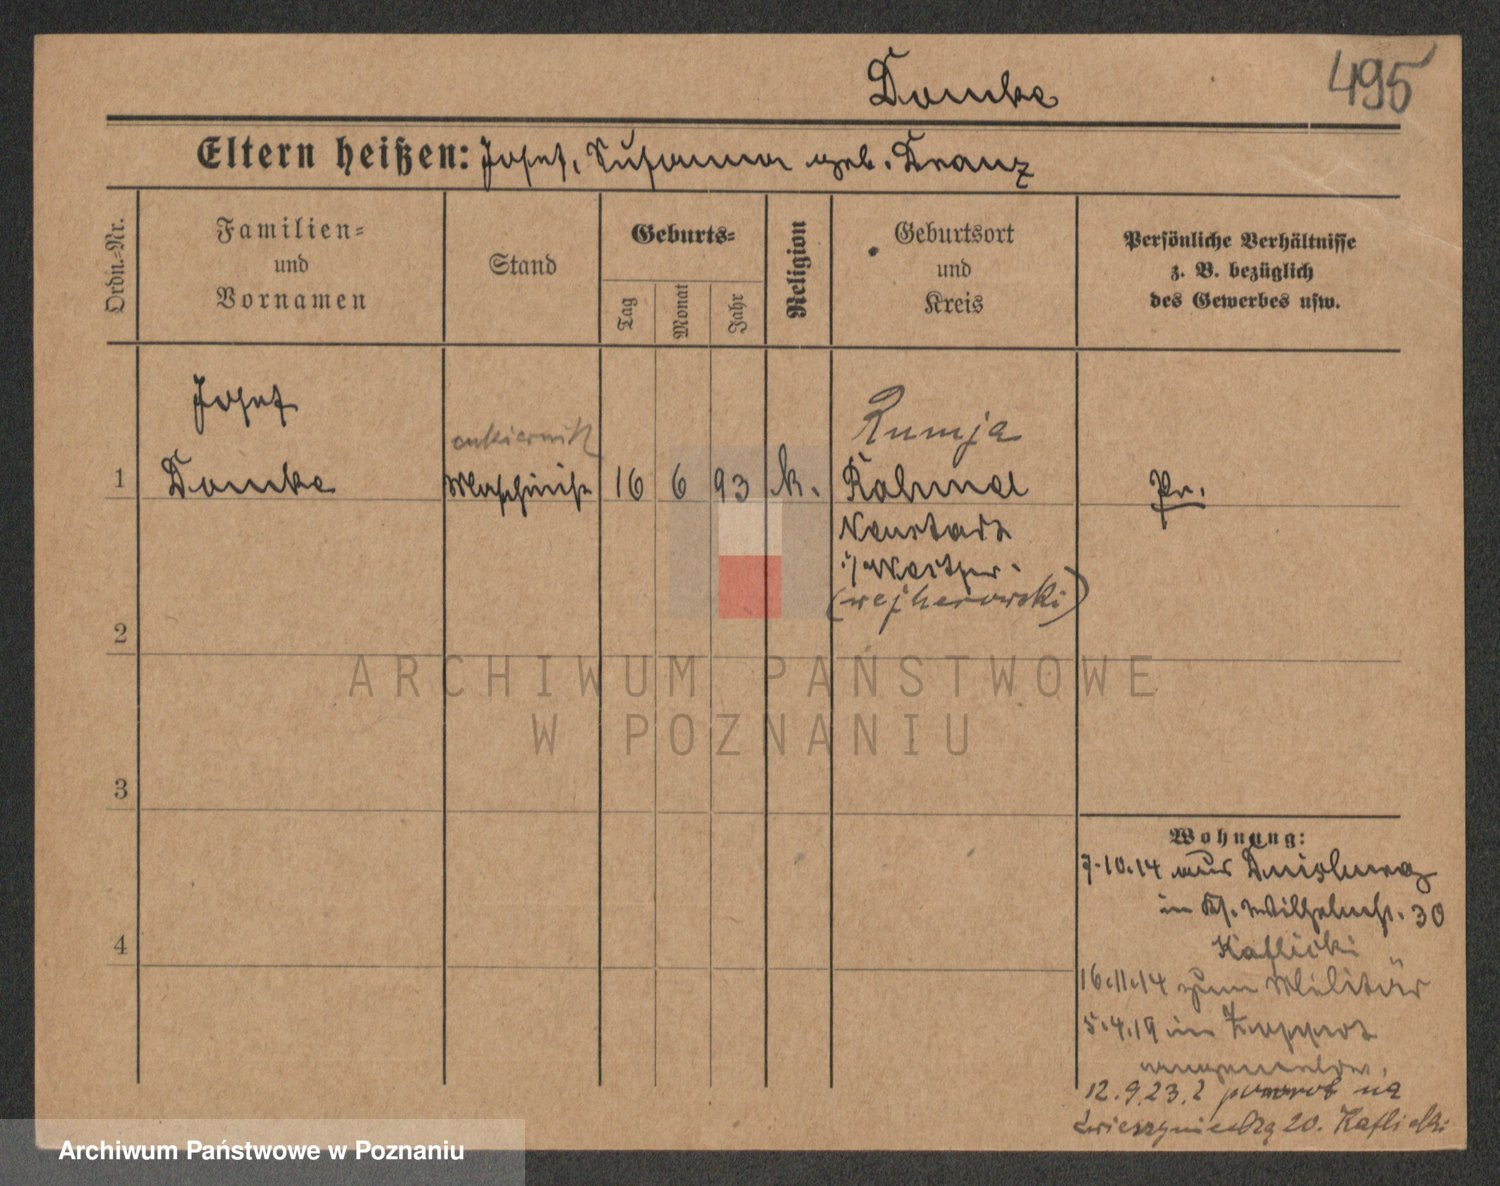 Domke
495
Eltern heißen: Josef, Susanna geb. Kranz
Ordn.-Nr.
Familien=
und
Vornamen
Stand
Geburts=
Tag
Monat
Jahr
Religion
Geburtsort
und
Kreis
Persönliche Verhältnisse
z. B. bezüglich
des Gewerbes usw.
1
Josef
Domke
cukiernik
Maschinist
16
6
93
k.
Rumja
Rahmel
Neustadt
i/Westpr.
(wejherowski)
Pr.
2
3
4
Wohnung:
7.10.14 aus Duisburg
in Wilhelmst. 30
Kaflicki
16.11.14 zum Militär
5.4.19 in Zoppot
angemeldet.
12.9.23. z powrot na
Zwierzyniecką 20. Kaflicki
ARCHIWUM PAŃSTWOWE
W POZNANIU
Archiwum Państwowe w Poznaniu